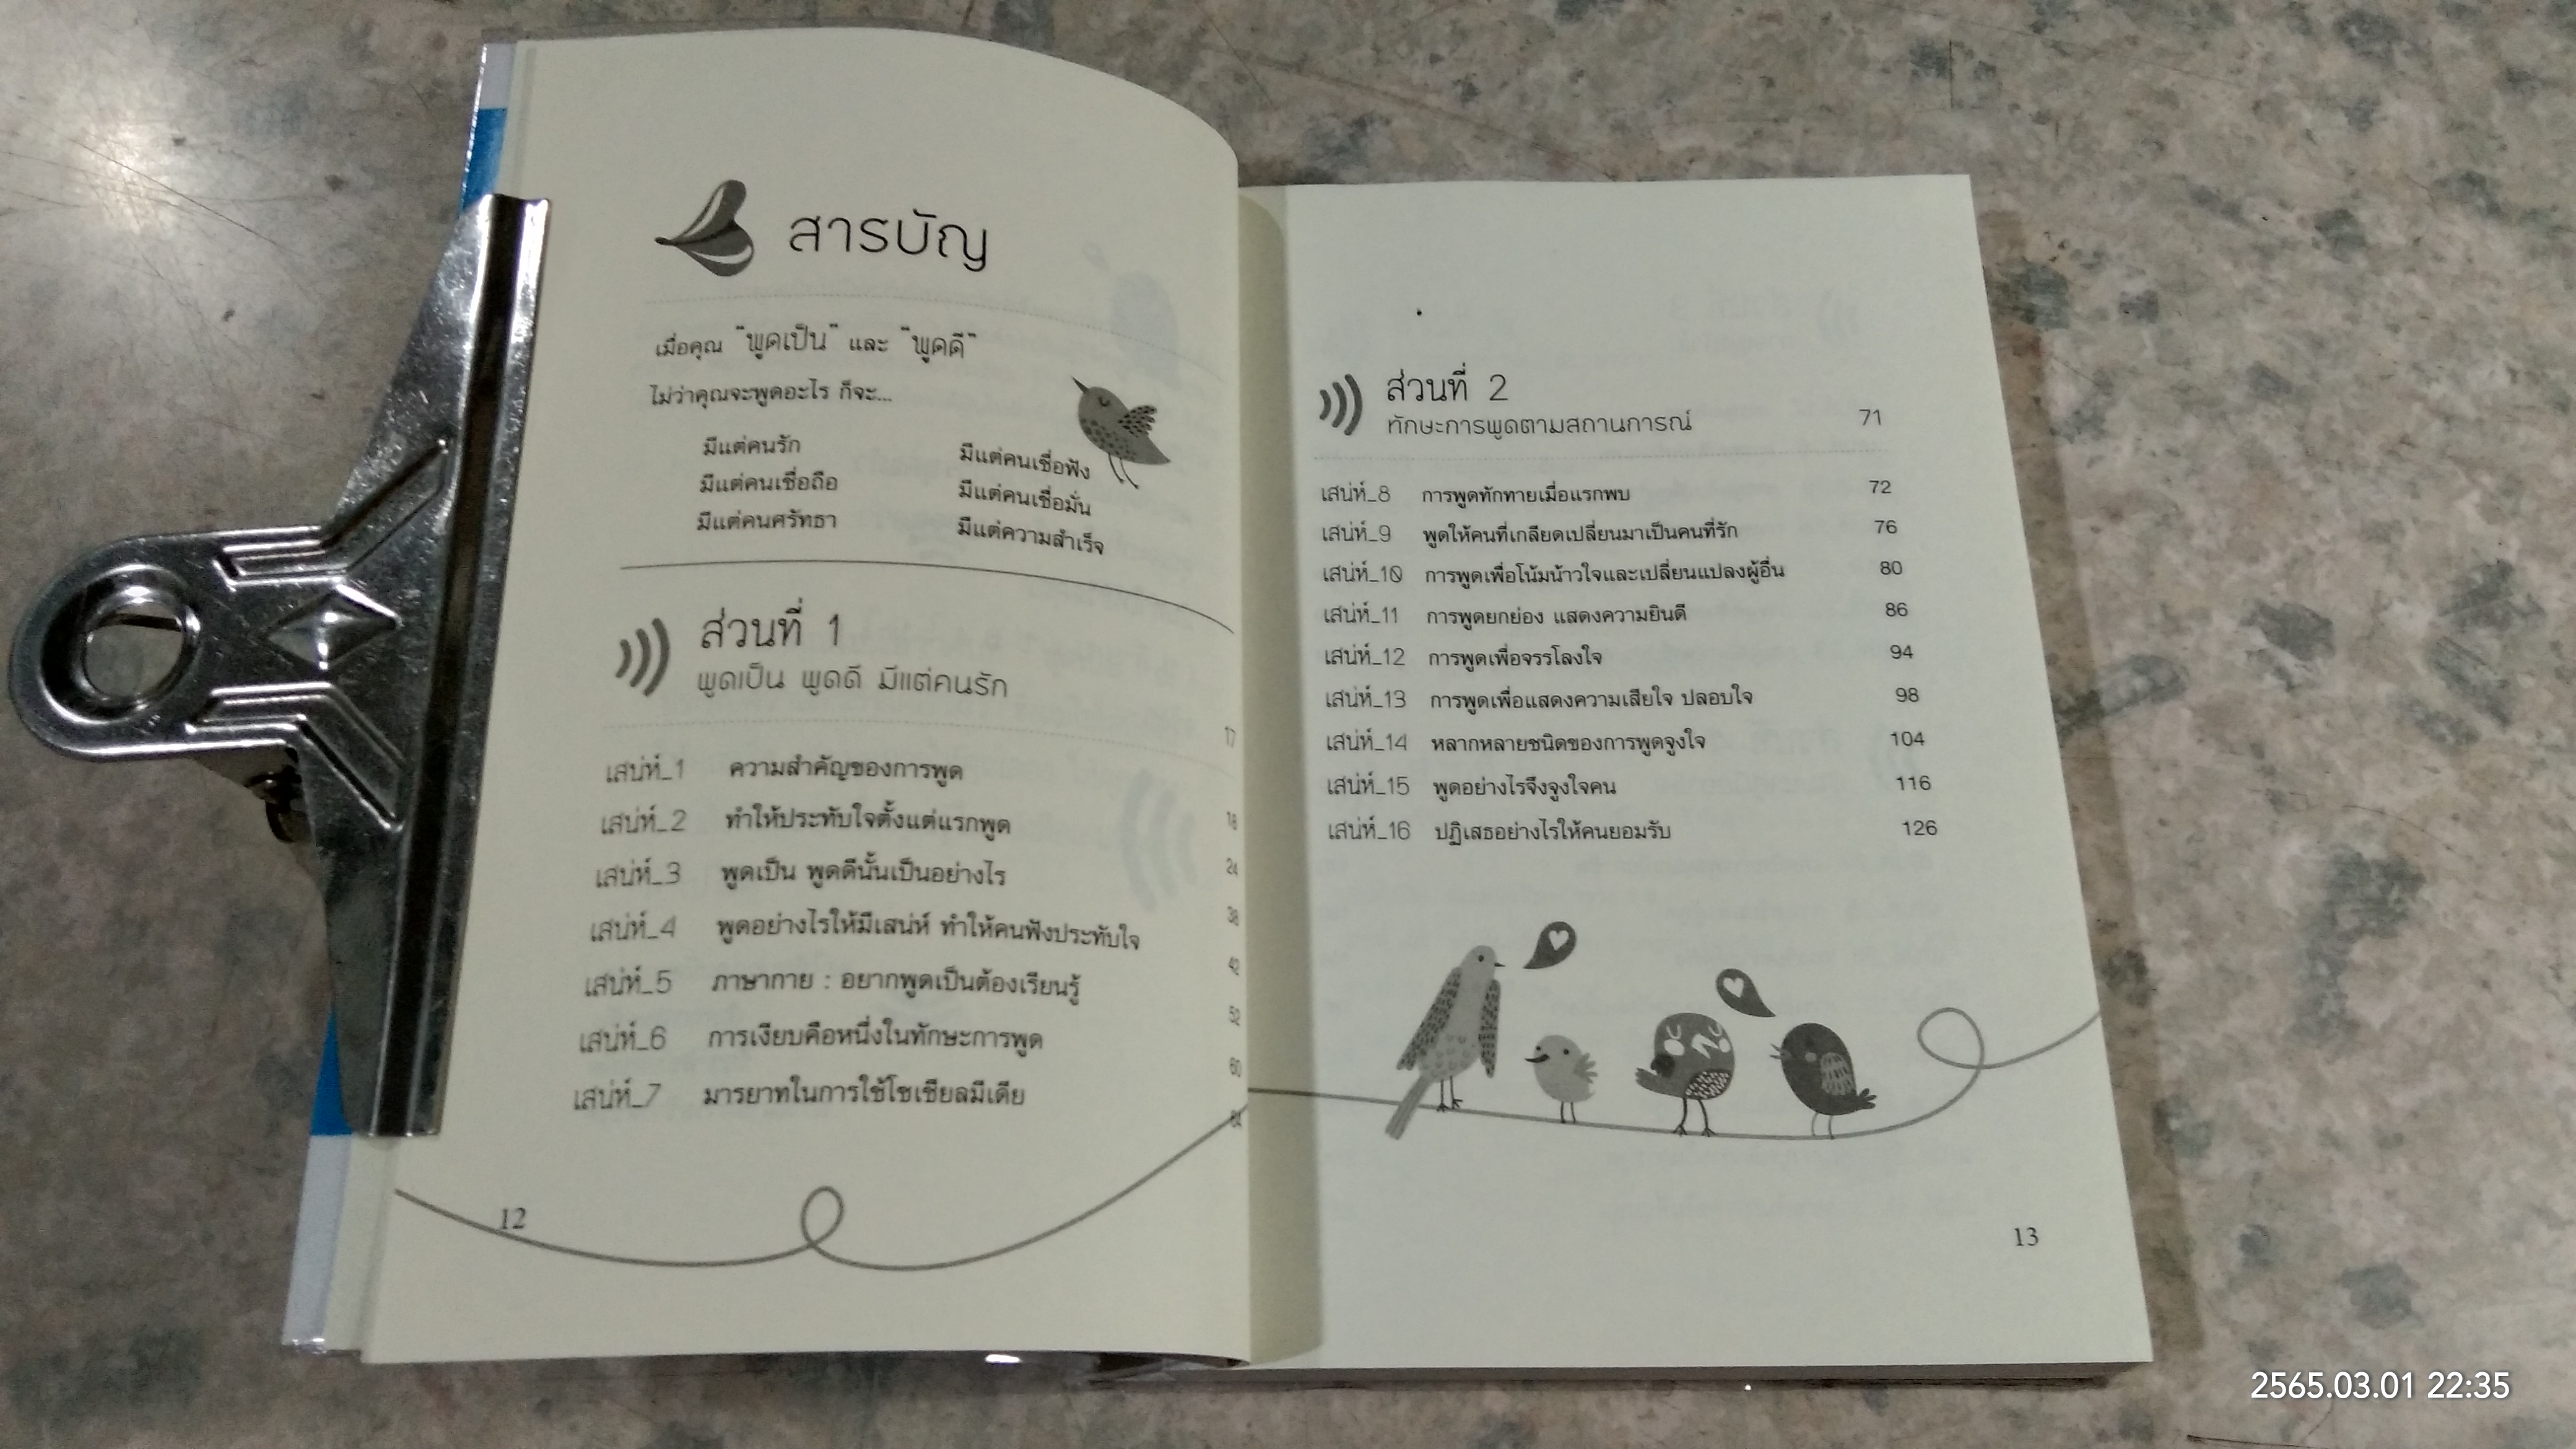 สารบัญ
เมื่อคุณ "พูดเป็น" และ "พูดดี"
ไม่ว่าคุณจะพูดอะไร ก็จะ...
มีแต่คนรัก มีแต่คนเชื่อฟัง
มีแต่คนเชื่อถือ มีแต่คนเชื่อมั่น
มีแต่คนศรัทธา มีแต่ความสำเร็จ
ส่วนที่ 1
พูดเป็น พูดดี มีแต่คนรัก 17
เสน่ห์_1 ความสำคัญของการพูด 18
เสน่ห์_2 ทำให้ประทับใจตั้งแต่แรกพูด 24
เสน่ห์_3 พูดเป็น พูดดีนั้นเป็นอย่างไร 38
เสน่ห์_4 พูดอย่างไรให้มีเสน่ห์ ทำให้คนฟังประทับใจ 42
เสน่ห์_5 ภาษากาย : อยากพูดเป็นต้องเรียนรู้ 52
เสน่ห์_6 การเงียบคือหนึ่งในทักษะการพูด 60
เสน่ห์_7 มารยาทในการใช้โซเชียลมีเดีย 64
12
ส่วนที่ 2
ทักษะการพูดตามสถานการณ์ 71
เสน่ห์_8 การพูดทักทายเมื่อแรกพบ 72
เสน่ห์_9 พูดให้คนที่เกลียดเปลี่ยนมาเป็นคนที่รัก 76
เสน่ห์_10 การพูดเพื่อโน้มน้าวใจและเปลี่ยนแปลงผู้อื่น 80
เสน่ห์_11 การพูดยกย่อง แสดงความยินดี 86
เสน่ห์_12 การพูดเพื่อจรรโลงใจ 94
เสน่ห์_13 การพูดเพื่อแสดงความเสียใจ ปลอบใจ 98
เสน่ห์_14 หลากหลายชนิดของการพูดจูงใจ 104
เสน่ห์_15 พูดอย่างไรจึงจูงใจคน 116
เสน่ห์_16 ปฏิเสธอย่างไรให้คนยอมรับ 126
13
2565.03.01 22:35